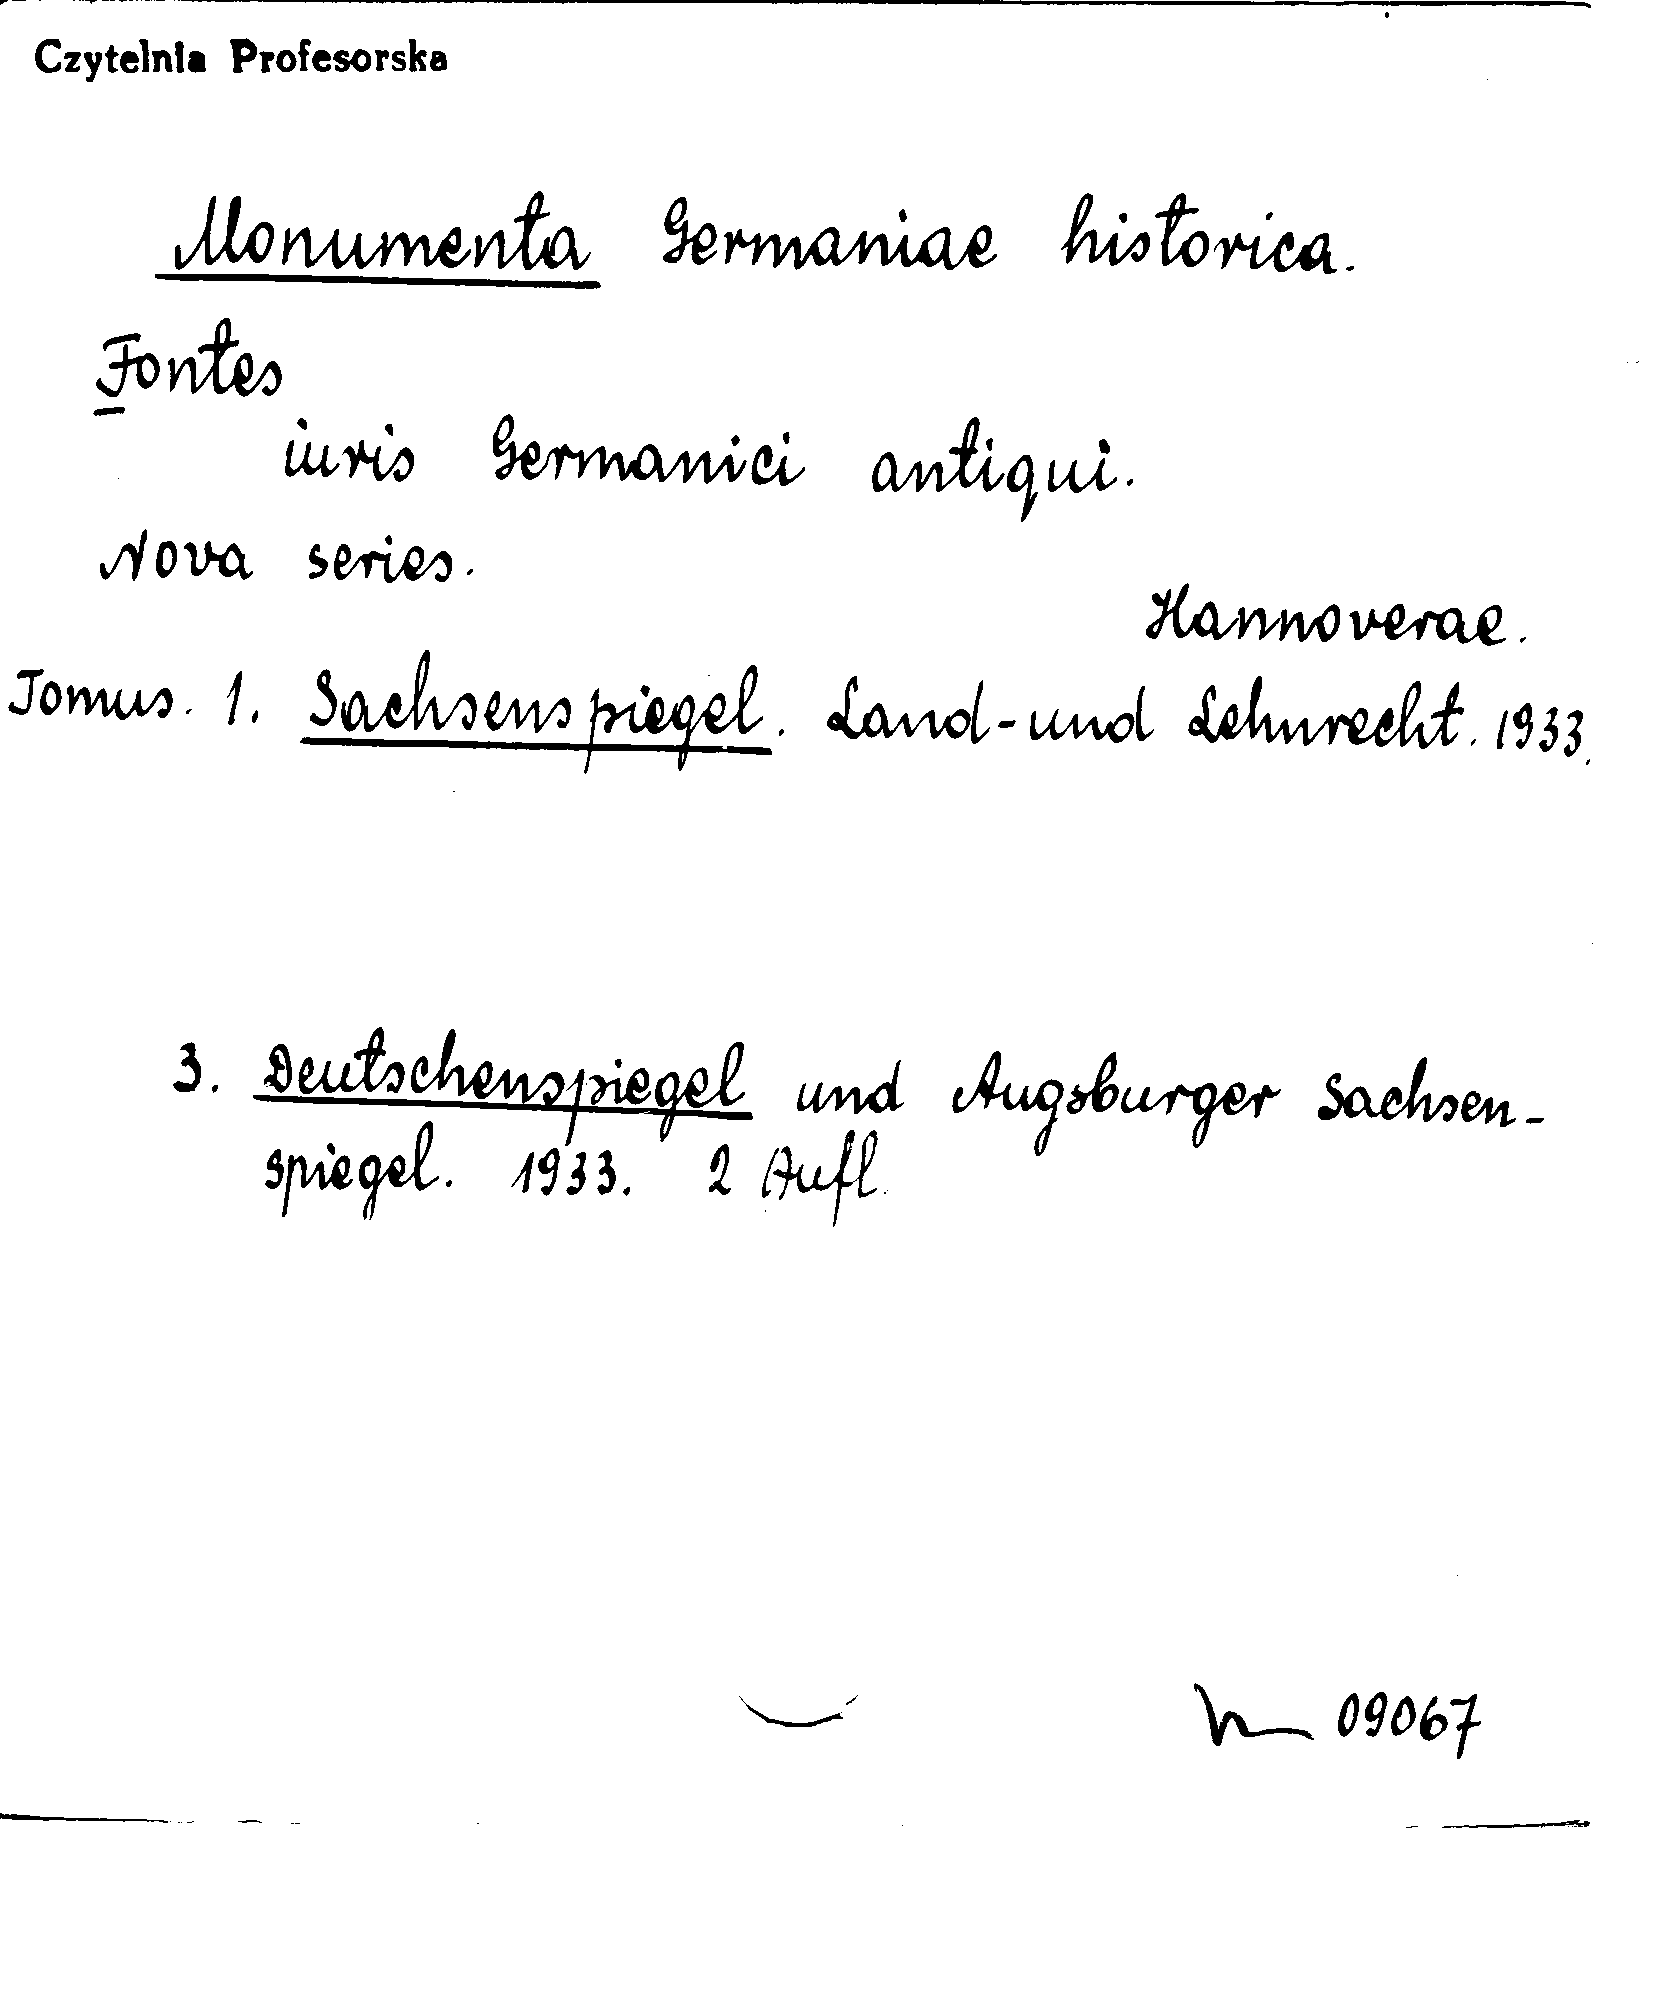 Czytelnia Profesorska
Monumenta Germaniae historica.
Fontes
iuris Germanici antiqui.
Nova series.
Hannoverae.
Tomus. 1. Sachsenspiegel. Land-und Lehnrecht. 1933.
3. Deutschenspiegel und Augsburger Sachsen-
spiegel. 1933. 2 Aufl.
09067